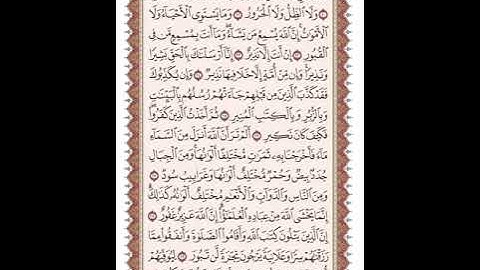 وَلَا ٱلظِّلُّ وَلَا ٱلْحَرُورُ ۝٢١ وَمَا يَسْتَوِى ٱلْأَحْيَآءُ وَلَا
ٱلْأَمْوَٰتُ إِنَّ ٱللَّهَ يُسْمِعُ مَن يَشَآءُ وَمَآ أَنتَ بِمُسْمِعٍ مَّن فِى
ٱلْقُبُورِ ۝٢٢ إِنْ أَنتَ إِلَّا نَذِيرٌ ۝٢٣ إِنَّآ أَرْسَلْنَٰكَ بِٱلْحَقِّ بَشِيرًا
وَنَذِيرًا وَإِن مِّنْ أُمَّةٍ إِلَّا خَلَا فِيهَا نَذِيرٌ ۝٢٤ وَإِن يُكَذِّبُوكَ
فَقَدْ كَذَّبَ ٱلَّذِينَ مِن قَبْلِهِمْ جَآءَتْهُمْ رُسُلُهُم بِٱلْبَيِّنَٰتِ
وَبِٱلزُّبُرِ وَبِٱلْكِتَٰبِ ٱلْمُنِيرِ ۝٢٥ ثُمَّ أَخَذْتُ ٱلَّذِينَ كَفَرُوا۟
فَكَيْفَ كَانَ نَكِيرِ ۝٢٦ أَلَمْ تَرَ أَنَّ ٱللَّهَ أَنزَلَ مِنَ ٱلسَّمَآءِ
مَآءً فَأَخْرَجْنَا بِهِۦ ثَمَرَٰتٍ مُّخْتَلِفًا أَلْوَٰنُهَا وَمِنَ ٱلْجِبَالِ
جُدَدٌۢ بِيضٌ وَحُمْرٌ مُّخْتَلِفٌ أَلْوَٰنُهَا وَغَرَابِيبُ سُودٌ ۝٢٧
وَمِنَ ٱلنَّاسِ وَٱلدَّوَآبِّ وَٱلْأَنْعَٰمِ مُخْتَلِفٌ أَلْوَٰنُهُۥ كَذَٰلِكَ
إِنَّمَا يَخْشَى ٱللَّهَ مِنْ عِبَادِهِ ٱلْعُلَمَٰٓؤُا۟ إِنَّ ٱللَّهَ عَزِيزٌ غَفُورٌ ۝٢٨
إِنَّ ٱلَّذِينَ يَتْلُونَ كِتَٰبَ ٱللَّهِ وَأَقَامُوا۟ ٱلصَّلَوٰةَ وَأَنفَقُوا۟ مِمَّا
رَزَقْنَٰهُمْ سِرًّا وَعَلَانِيَةً يَرْجُونَ تِجَٰرَةً لَّن تَبُورَ ۝٢٩ لِيُوَفِّيَهُمْ